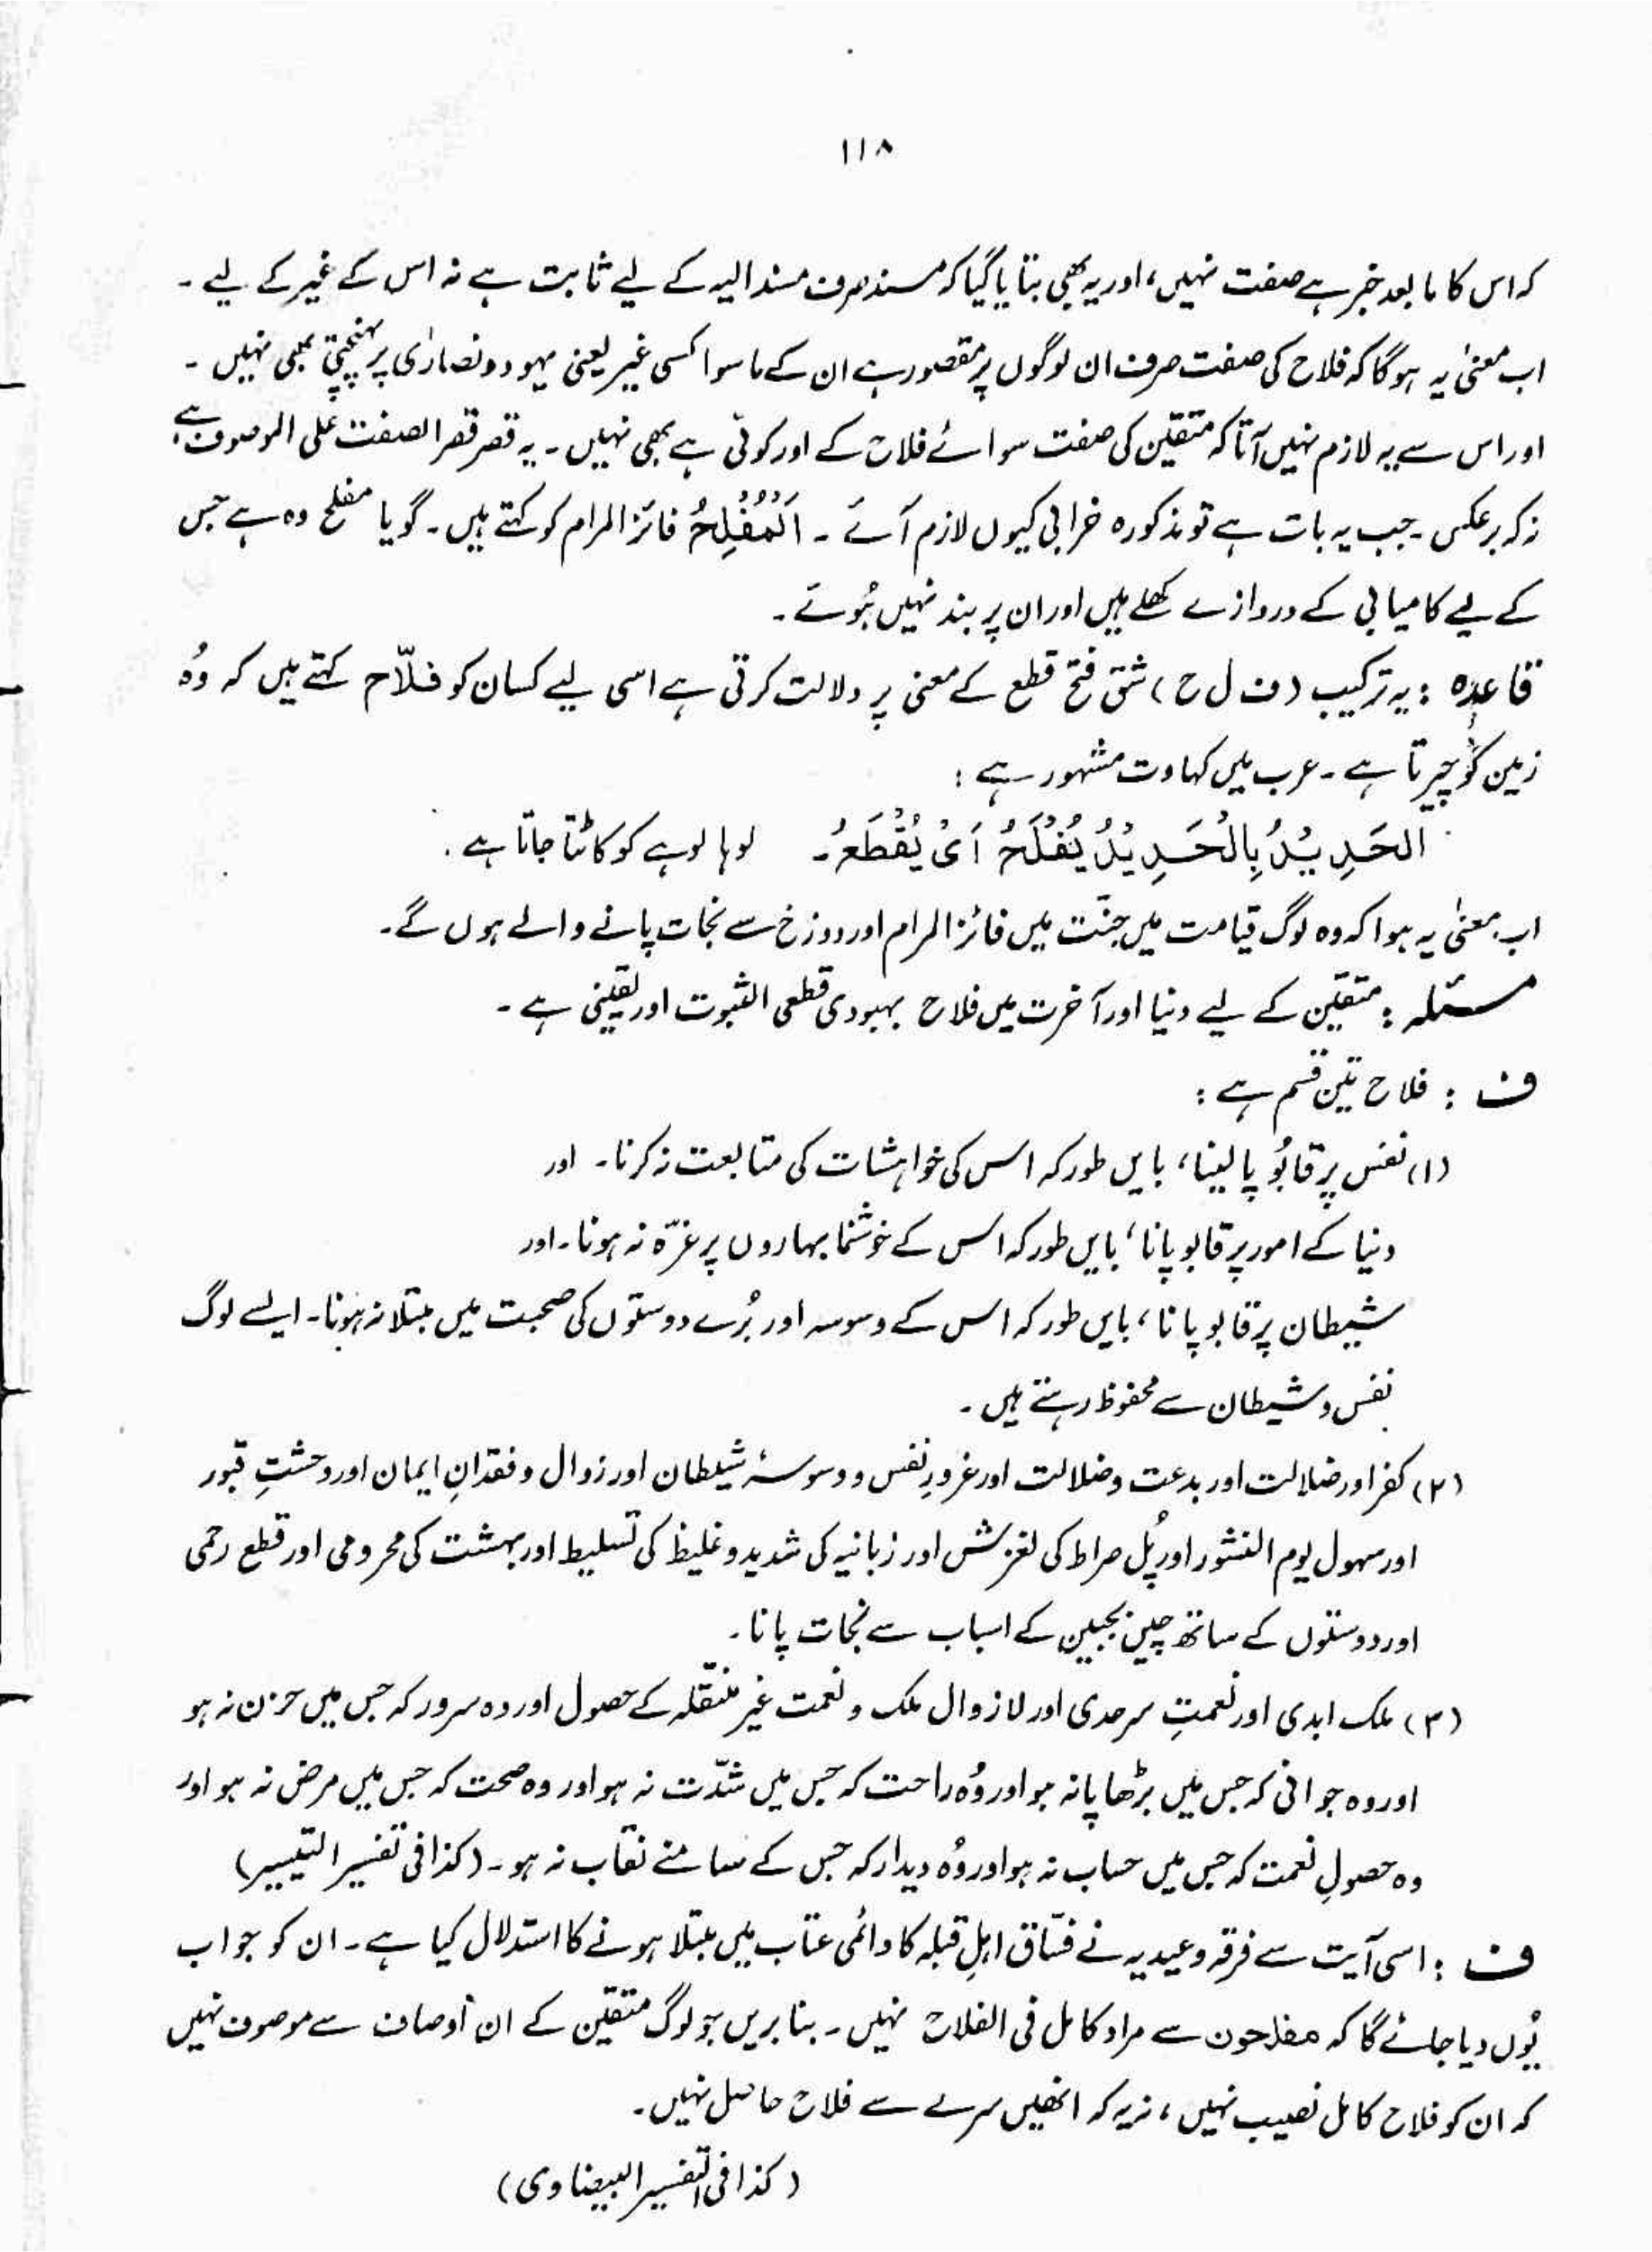 ۱۱۸
کہ اس کا مابعد خبر ہے صفت نہیں، اور یہ بھی بتایا گیا کہ مسند صرف مسند الیہ کے لیے ثابت ہے نہ اس کے غیر کے لیے ۔
اب معنیٰ یہ ہوگا کہ فلاح کی صفت صرف ان لوگوں پر مقصور ہے ان کے ماسوا کسی غیر یعنی یہود و نصارٰی پر پہنچتی بھی نہیں ۔
اور اس سے یہ لازم نہیں آتا کہ متقین کی صفت سوائے فلاح کے اور کوئی ہے بھی نہیں ۔ یہ قصر قصر الصفت علی الموصوف ہے
نہ کہ برعکس ۔ جب یہ بات ہے تو مذکورہ خرابی کیوں لازم آئے ۔ اَلْمُفْلِحُ فائز المرام کو کہتے ہیں ۔ گویا مفلح وہ ہے جس
کے لیے کامیابی کے دروازے کھلے ہیں اور ان پر بند نہیں ہُوتے ۔
قاعدہ : یہ ترکیب (ف ل ح) شق فتح قطع کے معنی پر دلالت کرتی ہے اسی لیے کسان کو فلّاح کہتے ہیں کہ وُہ
زمین کو چیرتا ہے ۔ عرب میں کہاوت مشہور ہے :
الحَدِیْدُ بِالْحَدِیْدُ یُفْلَحُ اَیْ یُقْطَعُ ۔ لوہا لوہے کو کاٹتا جاتا ہے .
اب معنیٰ یہ ہوا کہ وہ لوگ قیامت میں جنّت میں فائز المرام اور دوزخ سے نجات پانے والے ہوں گے ۔
مسئلہ : متقین کے لیے دنیا اور آخرت میں فلاح بہبودی قطعی الثبوت اور یقینی ہے ۔
ف : فلاح تین قسم ہے :
(۱) نفس پر قابُو پا لینا، بایں طور کہ اس کی خواہشات کی متابعت نہ کرنا ۔ اور
دنیا کے امور پر قابو پانا، بایں طور کہ اس کے خوشنما بہاروں پر غرّہ نہ ہونا ۔ اور
شیطان پر قابو پانا، بایں طور کہ اس کے وسوسہ اور بُرے دوستوں کی صحبت میں مبتلا نہ ہونا ۔ ایسے لوگ
نفس و شیطان سے محفوظ رہتے ہیں ۔
(۲) کفر اور ضلالت اور بدعت و ضلالت اور غرورِ نفس و وسوسۂ شیطان اور زوال و فقدانِ ایمان اور وحشتِ قبور
اور سہول یوم النشور اور پُل صراط کی لغزش اور زبانیہ کی شدید و غلیظ کی تسلیط اور بہشت کی محرومی اور قطع رحمی
اور دوستوں کے ساتھ چین بجبین کے اسباب سے نجات پانا ۔
(۳) ملک ابدی اور نعمتِ سرمدی اور لازوال ملک و نعمت غیر منتقلہ کے حصول اور وہ سرور کہ جس میں حزن نہ ہو
اور وہ جوانی کہ جس میں بڑھاپا نہ ہو اور وُہ راحت کہ جس میں شدّت نہ ہو اور وہ صحت کہ جس میں مرض نہ ہو اور
وہ حصولِ نعمت کہ جس میں حساب نہ ہو اور وُہ دیدار کہ جس کے سامنے نقاب نہ ہو ۔ (کذا فی تفسیر التیسیر)
ف : اسی آیت سے فرقہ وعیدیہ نے فسّاق اہلِ قبلہ کا دائمی عتاب میں مبتلا ہونے کا استدلال کیا ہے ۔ ان کو جواب
یُوں دیا جائے گا کہ مفلحون سے مراد کامل فی الفلاح نہیں ۔ بنا بریں جو لوگ متقین کے ان اوصاف سے موصوف نہیں
کہ ان کو فلاح کامل نصیب نہیں، نہ یہ کہ انھیں سرے سے فلاح حاصل نہیں ۔
(کذا فی التفسیر البیضاوی)